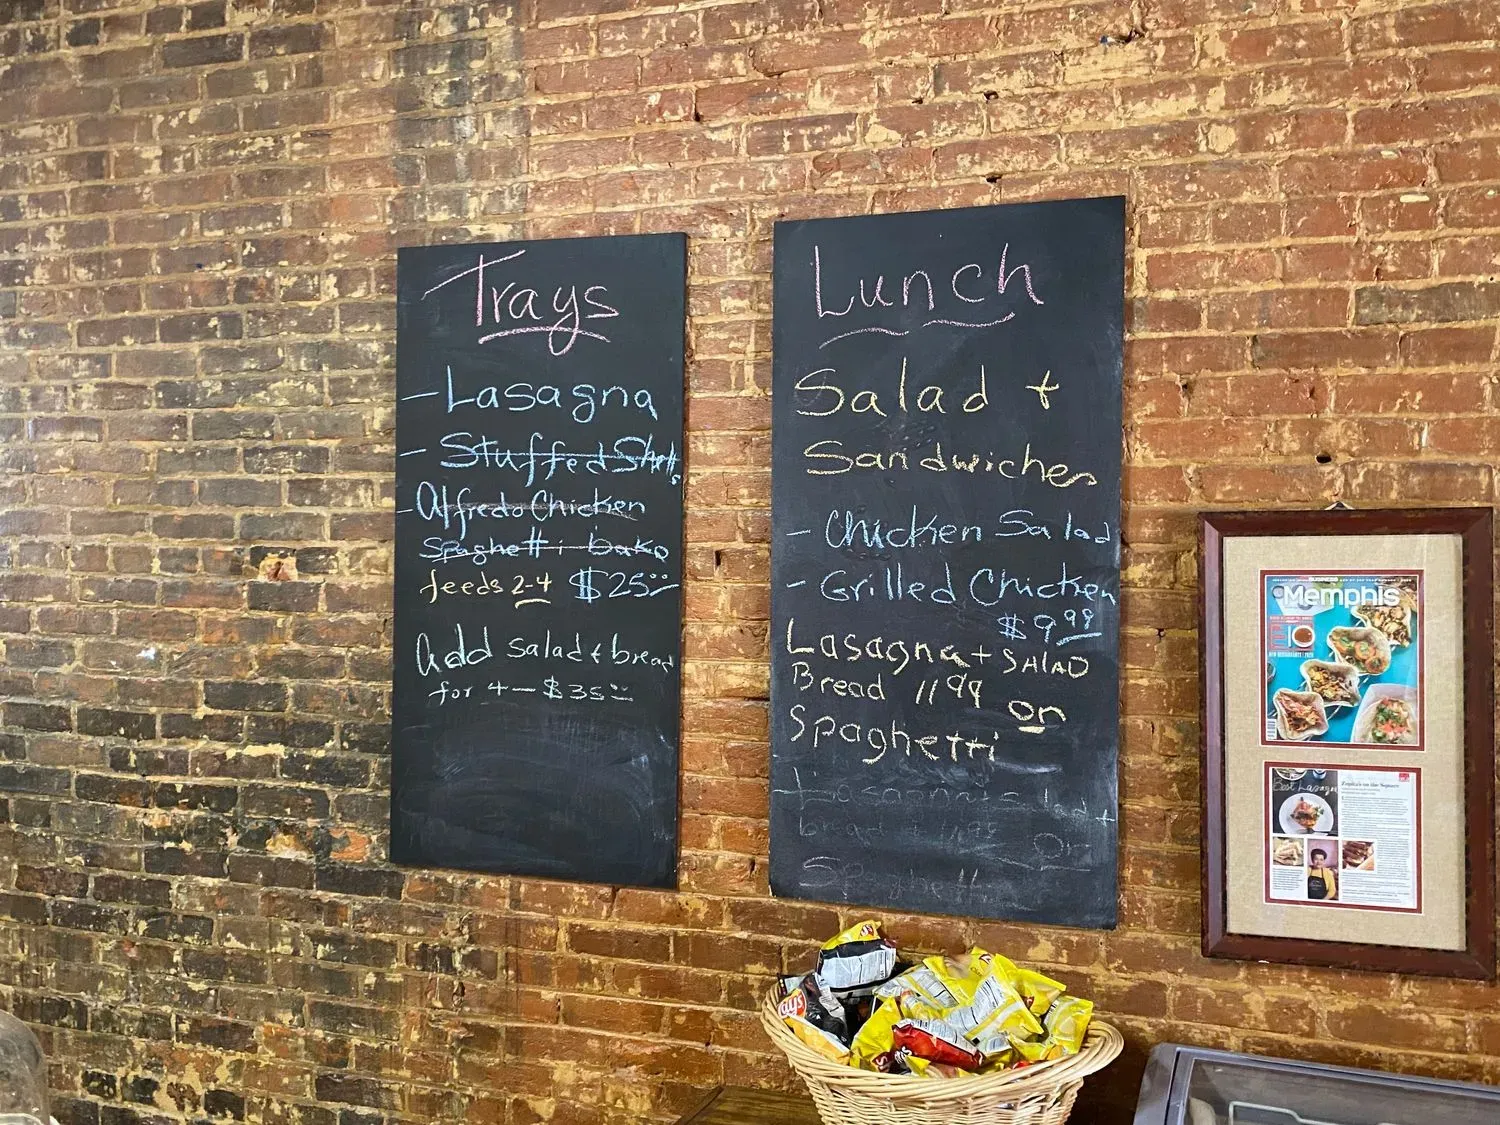 Trays
- Lasagna
- Stuffed Shells
- Alfredo Chicken
Spaghetti bake
feeds 2-4 $25.00
Add salad + bread
for 4 - $35.00
Lunch
Salad +
Sandwiches
- Chicken Salad
- Grilled Chicken
$9.99
Lasagna + SALAD
Bread 11.99
or
Spaghetti
Lasagna + salad +
bread + 11.99
Or
Spaghetti
Lay's
Memphis
Best Lasagna